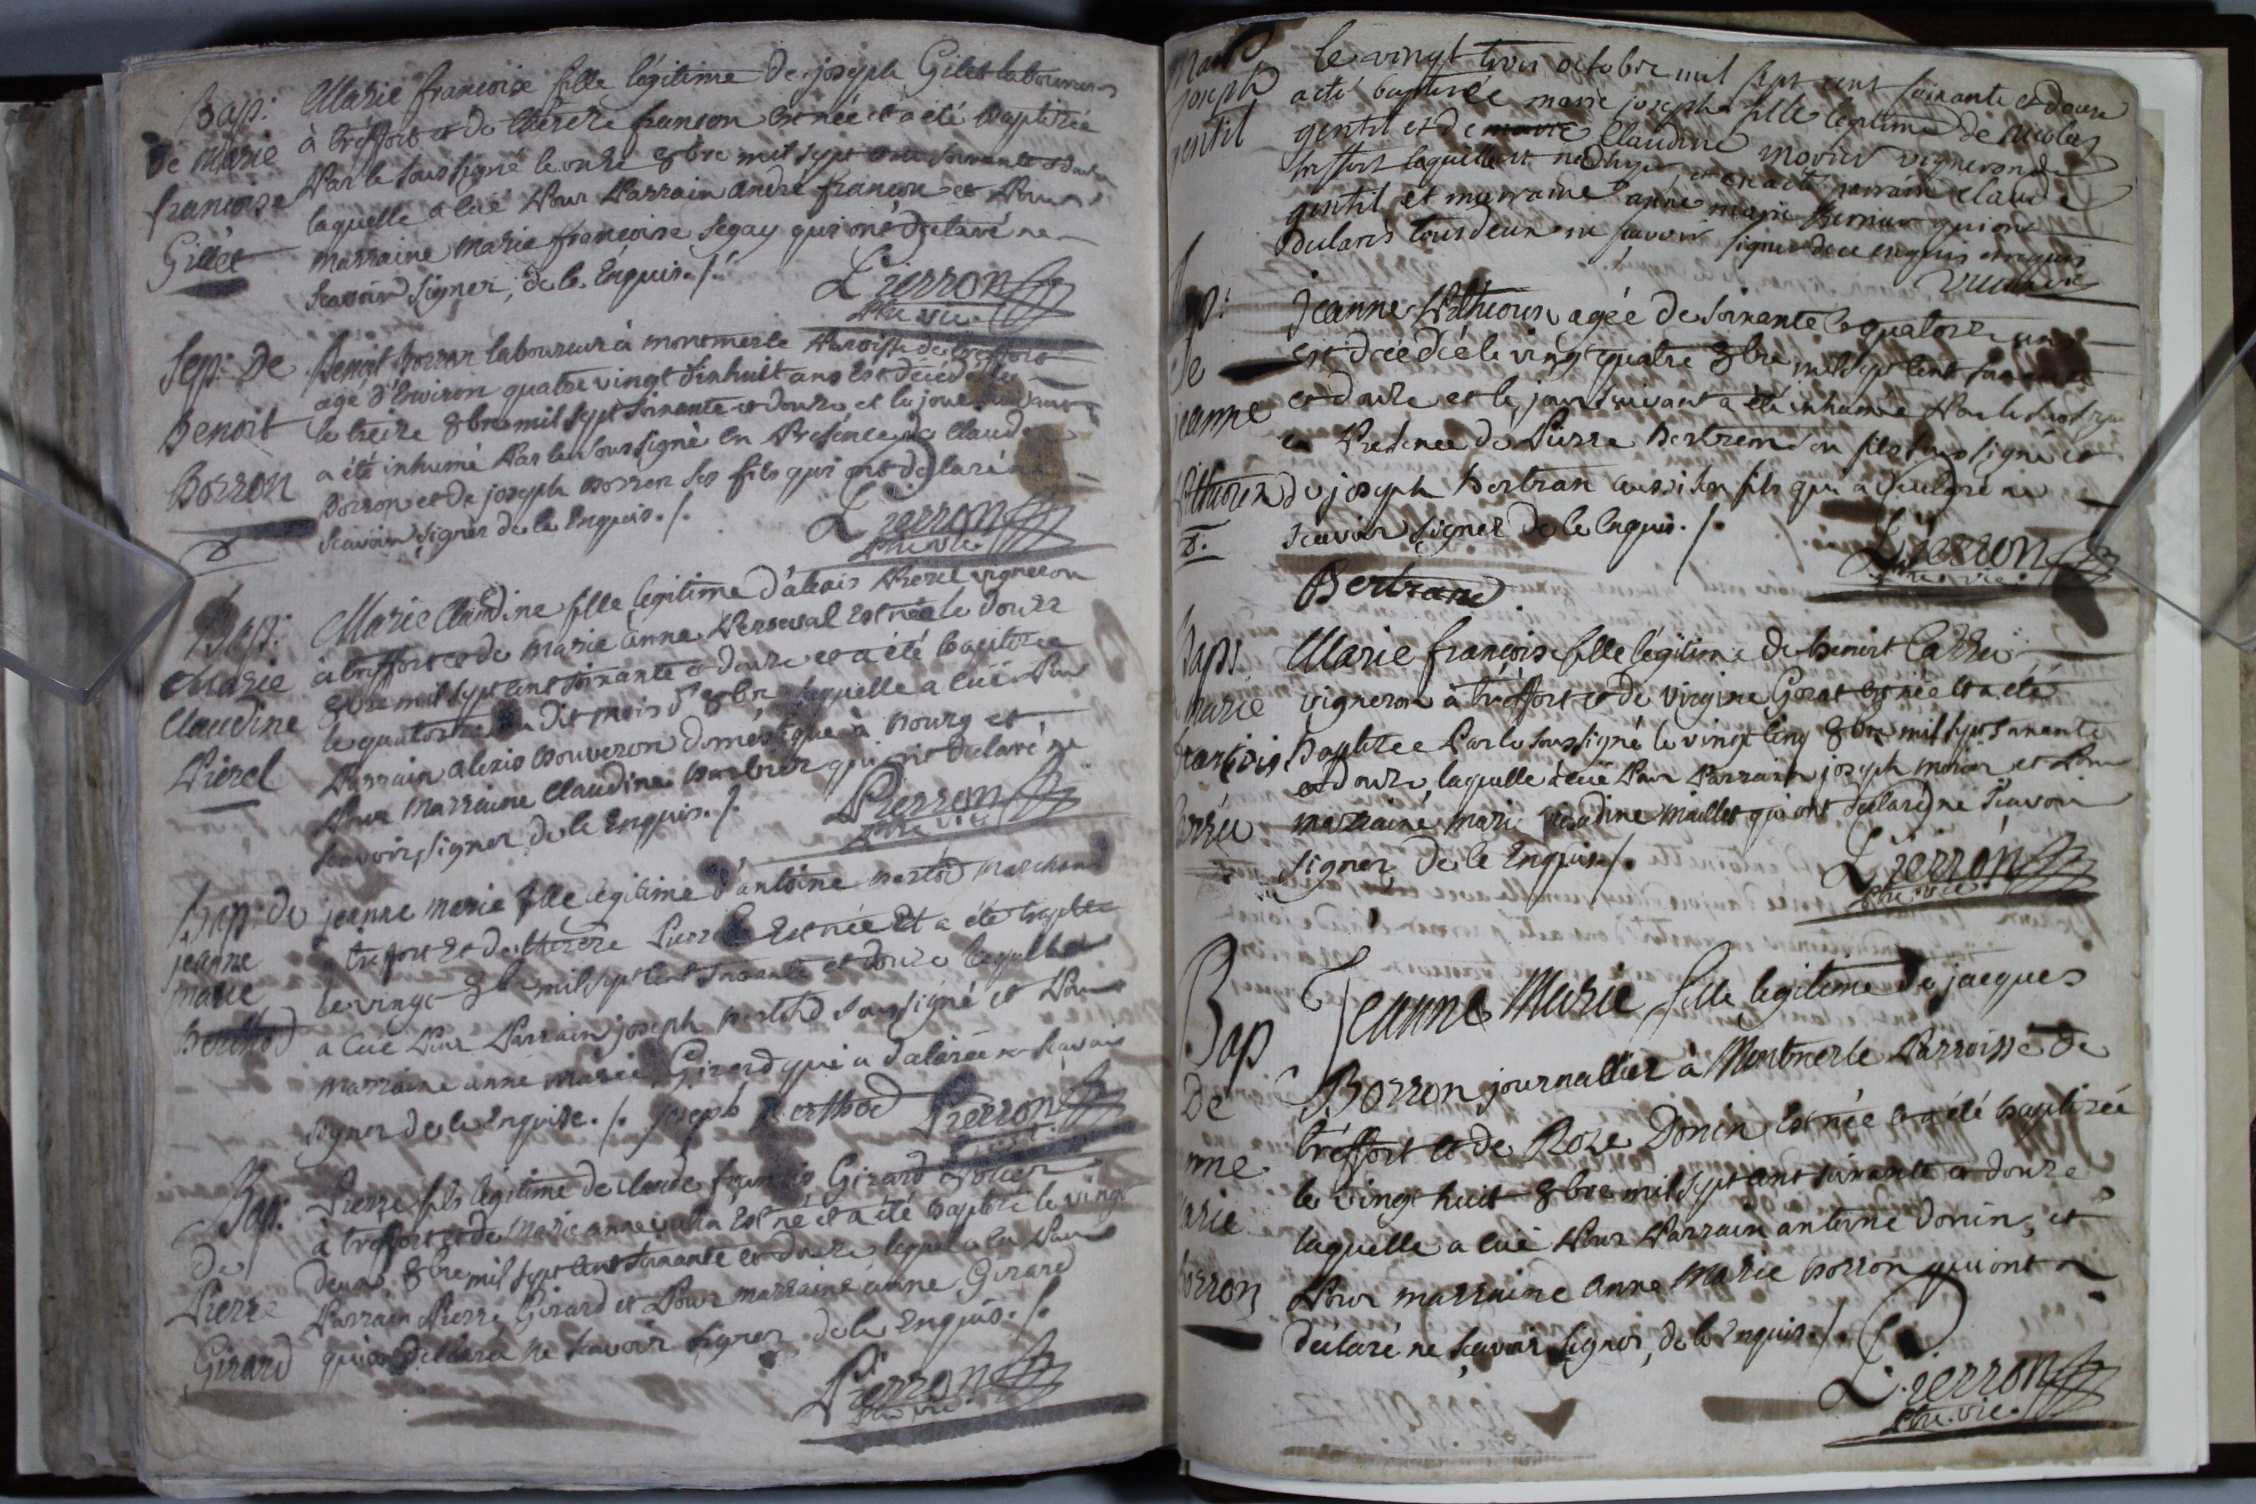 Bap:
de Marie
francoise
Gillet
Marie francoise fille légitime de joseph Gilet laboureur
à tréffort et de therese francon est née et a été baptizée
Par le soussigné le onze 8bre mil sept cent soixante et douze
laquelle a eüe Pour Parrain andré francon et Pour
marraine Marie francoise Segay qui ont déclaré ne
scavoir signer, de ce Enquis ./.
Pierron
Ptre vic.
Sep: de
Benoit
Borron
8.
Benoit Borron laboureur à monmerle Paroisse de treffort
agé d'Environ quatre vingt dixhuit ans Est décédé le
le treize 8bre mil sept soixante et douze, et le jour suivant
a été inhumé Par le soussigné En Présence de Claude
Borron et de joseph Borron ses fils qui ont déclaré ne
scavoir signer de ce Enquis ./.
Pierron
Ptre vic.
Bap:
Marie
Claudine
Pierel
Marie Claudine fille légitime d'alexis Pierel vigneron
à treffort et de Marie anne Perceval Est née le douze
8bre mil sept cent soixante et douze et a été baptizée
le quatorze du dit mois d'8bre laquelle a eüe Pour
Parrain alexis Bouveron doméstique à Bourg et
Pour Marraine Claudine Barbier qui ont déclaré ne
scavoir signer de ce Enquis ./.
Pierron
Ptre vic.
Bap: de
jeanne
marie
Berthod
jeanne Marie fille légitime d'antoine Bertod Marchand
a trefort Et de therèze Est née Et a été baptizée
le vingt 8bre mil sept cent soixante et douze laquelle
a eüe Pour Parrain joseph Bertod soussigné et Pour
marraine anne Marie Girard qui a déclarée ne scavoir
signer de ce Enquise ./. joseph Berthod Pierron
Bap:
De
Pierre
Girard
Pierre fils légitime de claude francois Girard
à treffort et de Marie anne Est né et a été baptizé le vingt
deux 8bre mil sept cent soixante et douze lequel a eu Pour
Parrain Pierre Girard et Pour marraine anne Girard
qui ont déclaré ne scavoir signer de ce Enquis ./.
Pierron
Ptre vic.
joseph
gentil
le vingt trois octobre mil sept cent soixante et douze
a été baptizée marie joseph fille legitime de nicolas
gentil et de marie Claudine morier vigneron de
treffort laquelle est née hyer, et en a été parrain claude
gentil et marraine anne marie qui ont
declarés tous deux ne scavoir signer de ce enquis
jeanne
Pithiorin
8.
jeanne Pithiorin agée de soixante et quatorze ans
est décédée le vingt quatre 8bre mil sept cent soixante
et douze et le jour suivant a été inhumée Par le soussigné
en Présence de Pierre Bertrand son fils soussigné et
de joseph Bertran aussi son fils qui a déclaré ne
scavoir signer de ce Enquis ./.
Pierron
Ptre vic.
Bertrand
Bap:
Marie
françoise
Carru
Marie françoise fille légitime de benoit Carru
vigneron à tréffort et de virgine Gorat est née Et a été
baptizée Par le soussigné le vingt cinq 8bre mil sept soixante
et douze, laquelle a eüe Pour Parrain joseph morier et Pour
marraine marie claudine Maillet qui ont déclaré ne scavoir
signer de ce Enquis ./.
Pierron
Ptre vic.
Bap
De
nne
arie
orron
Jeanne Marie fille légitime de jacques
Borron journallier à Montmerle Parroisse de
tréffort et de Roze Donin Est née et a été baptizée
le vingt huit 8bre mil sept cent soixante et douze
laquelle a eüe Pour Parrain antoine Donin, et
Pour marraine anne Marie Borron qui ont
déclaré ne scavoir signer, de ce Enquis ./.
Pierron
Ptre. vic.